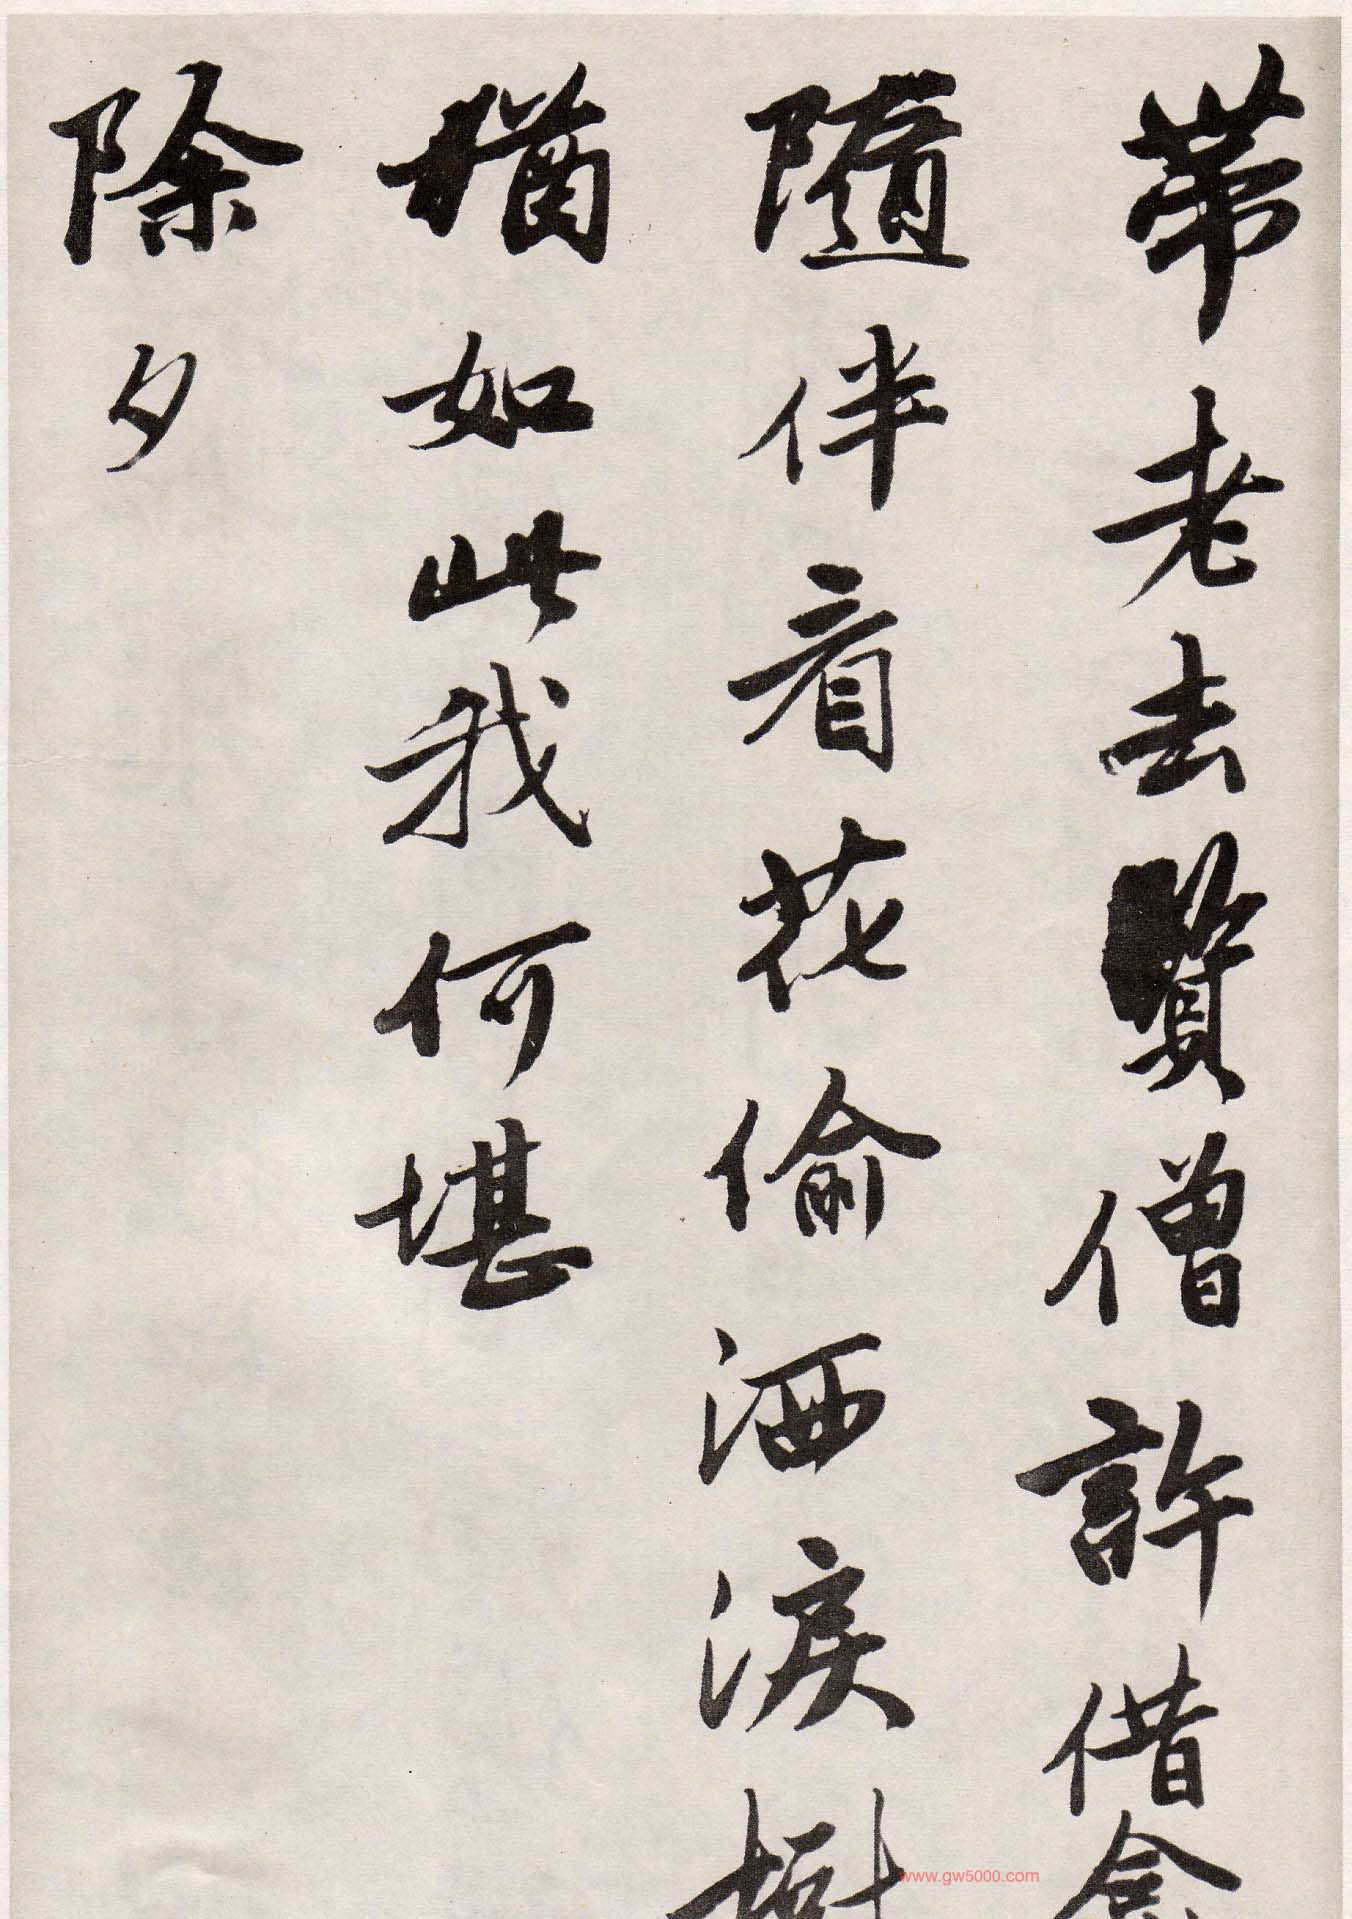 带老去賢僧許借龕
隨伴看花偷洒淚樹
猶如此我何堪
除夕
www.gw5000.com